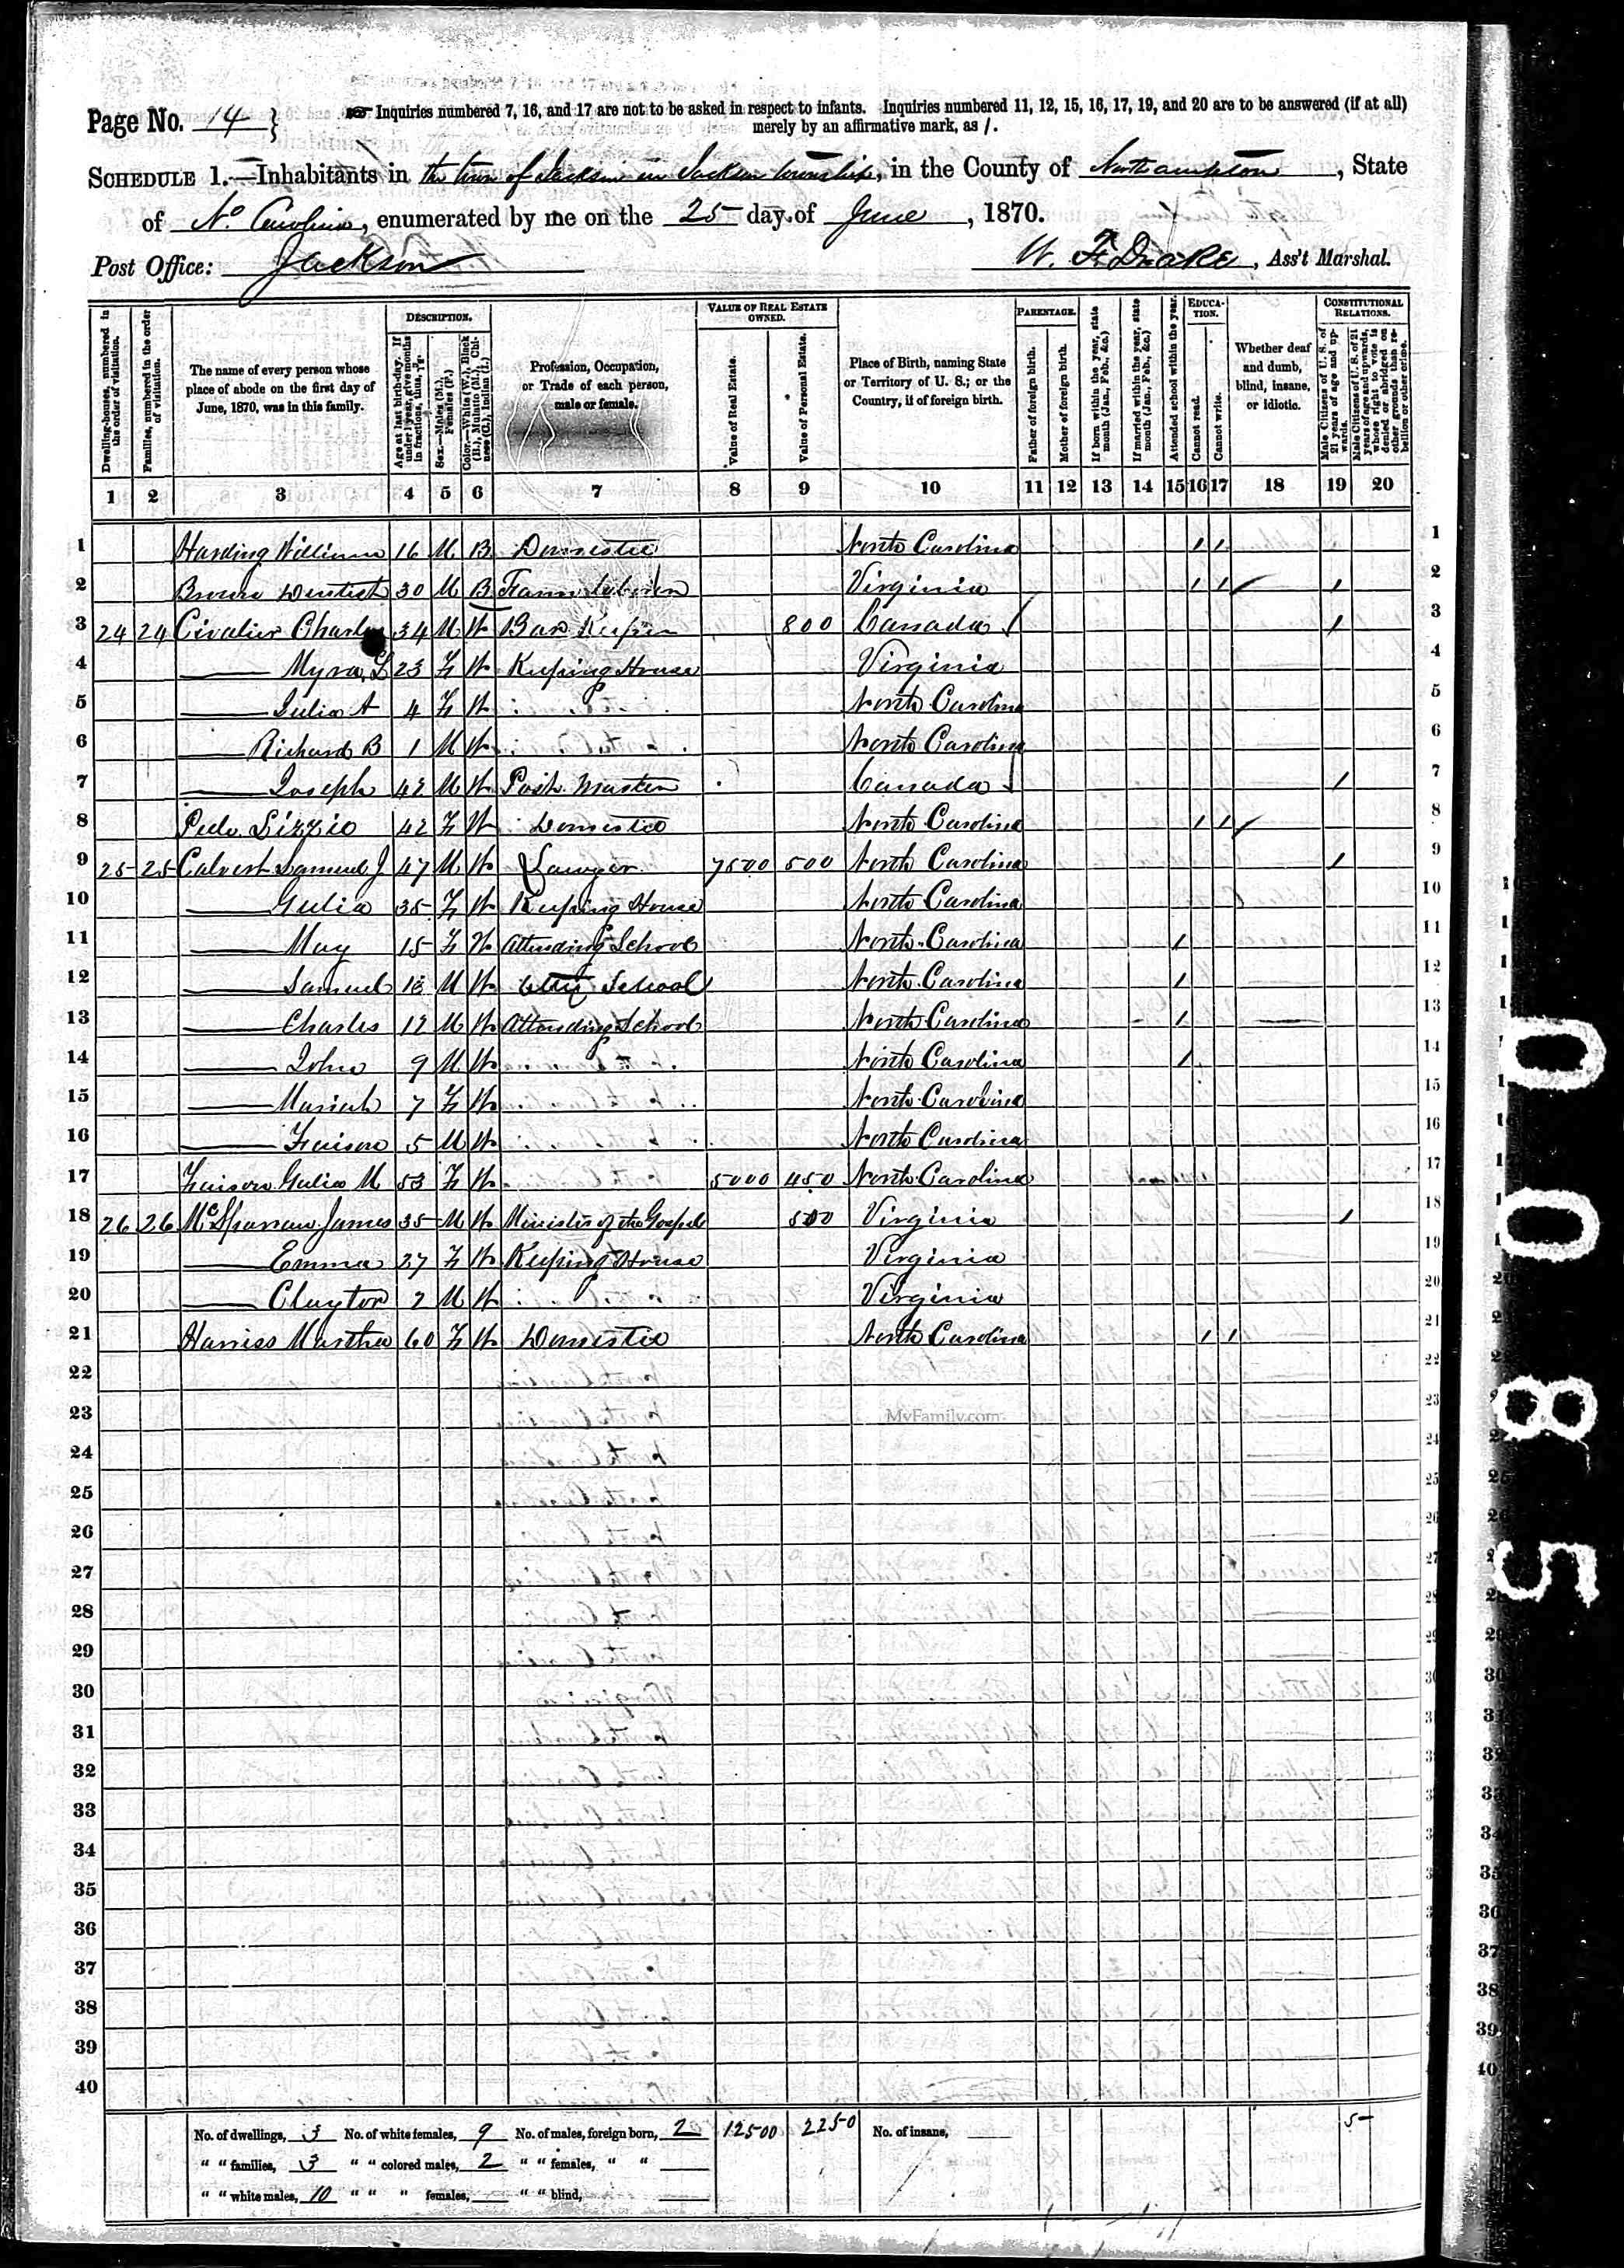 Page No. 14 } Inquiries numbered 7, 16, and 17 are not to be asked in respect to infants. Inquiries numbered 11, 12, 15, 16, 17, 19, and 20 are to be answered (if at all)
merely by an affirmative mark, as /.
SCHEDULE 1.—Inhabitants in the town of Jackson in Jackson township, in the County of Northampton, State
of No. Carolina, enumerated by me on the 25 day of June, 1870.
Post Office: Jackson W. F. Drake, Ass't Marshal.
Dwelling-houses, numbered in the order of visitation.
Families, numbered in the order of visitation.
The name of every person whose place of abode on the first day of June, 1870, was in this family.
DESCRIPTION.
Age at last birth-day. If under 1 year, give months in fractions, thus, 3/12.
Sex.—Males (M.), Females (F.)
Color.—White (W.), Black (B.), Mulatto (M.), Chinese (C.), Indian (I.)
Profession, Occupation, or Trade of each person, male or female.
VALUE OF REAL ESTATE OWNED.
Value of Real Estate.
Value of Personal Estate.
Place of Birth, naming State or Territory of U. S.; or the Country, if of foreign birth.
PARENTAGE.
Father of foreign birth.
Mother of foreign birth.
If born within the year, state month (Jan. Feb., &c.)
If married within the year, state month (Jan., Feb., &c.)
Attended school within the year.
EDUCATION.
Cannot read.
Cannot write.
Whether deaf and dumb, blind, insane, or idiotic.
CONSTITUTIONAL RELATIONS.
Male Citizens of U. S. of 21 years of age and upwards.
Male Citizens of U. S. of 21 years of age and upwards, whose right to vote is denied or abridged on other grounds than rebellion or other crime.
1 2 3 4 5 6 7 8 9 10 11 12 13 14 15 16 17 18 19 20
1 Harding William 16 M B Domestic North Carolina / / 1
2 Brown 30 M B Farm laborer Virginia / / / 2
3 24 24 Civalier Charles 34 M W Bar Keeper 800 Canada / 3
4 —— Myra L 23 F W Keeping House Virginia 4
5 —— Julia A 4 F W North Carolina 5
6 —— Richard B 1 M W North Carolina 6
7 —— Joseph 42 M W Post Master Canada / 7
8 Peele Lizzie 42 F W Domestic North Carolina / / 8
9 25 25 Calvert Samuel J 47 M W Lawyer 7500 500 North Carolina / 9
10 —— Gulia 35 F W Keeping House North Carolina 10
11 —— May 15 F W Attending School North Carolina / 11
12 —— Samuel 13 M W School North Carolina / 12
13 —— Charles 12 M W Attending School North Carolina / 13
14 —— John 9 M W North Carolina / 14
15 —— Mariah 7 F W North Carolina 15
16 —— Faison 5 M W North Carolina 16
17 Faison Gulia M 53 F W 5000 450 North Carolina 17
18 26 26 James 35 M W Minister of the Gospel 500 Virginia / 18
19 —— Emma 27 F W Keeping House Virginia 19
20 —— Clayton 2 M W Virginia 20
21 Harriss Martha 60 F W Domestic North Carolina / / 21
22 22
23 MyFamily.com 23
24 24
25 25
26 26
27 27
28 28
29 29
30 30
31
32
33
34
35
36
37
38
39
40
No. of dwellings, 3 No. of white females, 9 No. of males, foreign born, 2 12500 2250 No. of insane, 5
" " families, 3 " " colored males, 2 " " females, " "
" " white males, 10 " " " females, " " blind,
0085